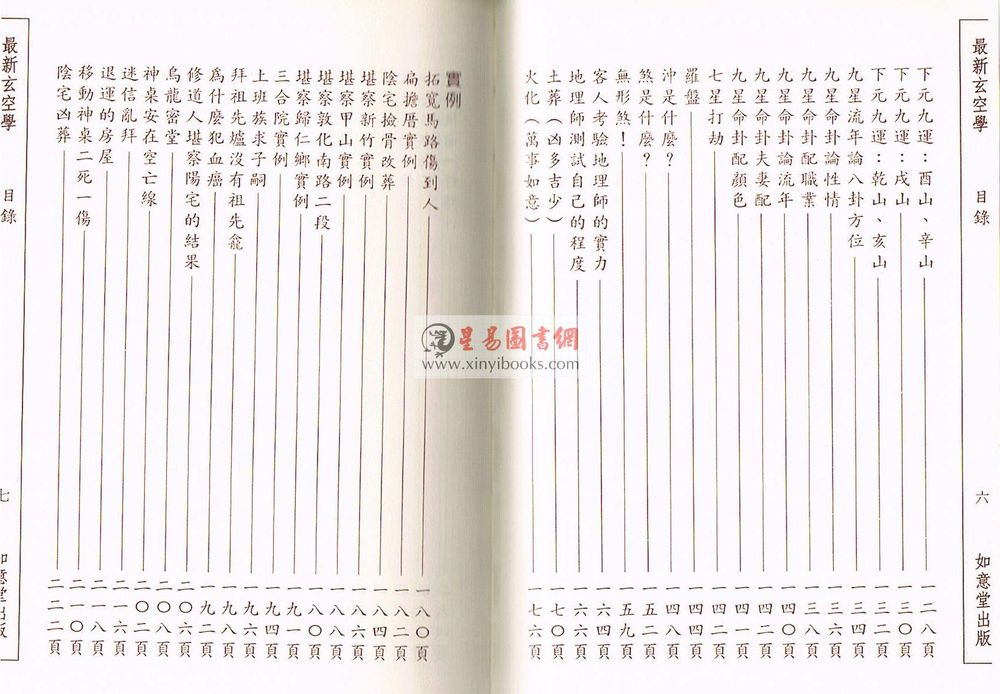 最新玄空學　目錄　六　如意堂出版
下元九運：酉山、辛山　一二八頁
下元九運：戌山　一三〇頁
下元九運：乾山、亥山　一三二頁
九星流年論八卦方位　一三六頁
九星命卦論性情
九星命卦配職業　一三八頁
九星命卦論流年　一四〇頁
九星命卦夫妻配　一四二頁
九星命卦配顏色
七星打劫
羅盤　一四四頁
沖是什麼？　一四八頁
煞是什麼？　一五二頁
無形煞！　一五九頁
客人考驗地理師的實力　一六四頁
地理師測試自己的程度　一六六頁
土葬（凶多吉少）　一七〇頁
火化（萬事如意）　一七六頁
實例
拓寬馬路傷到人　一八〇頁
扁擔厝實例　一八二頁
陰宅撿骨改葬　一八四頁
堪察新竹實例　一八六頁
堪察甲山實例　一八八頁
堪察敦化南路二段
堪察歸仁鄉實例
三合院實例　一九四頁
上班族求子嗣　一九六頁
拜祖先爐沒有祖先龕　一九八頁
爲什麼犯血癌
修道人堪察陽宅的結果　二〇六頁
烏龍密堂　二〇八頁
神桌安在空亡線
迷信亂拜　二一六頁
退運的房屋　二一八頁
移動神桌二死一傷
陰宅凶葬　二二二頁
最新玄空學　目錄　七　如意堂出版
星易圖書網
www.xinyibooks.com